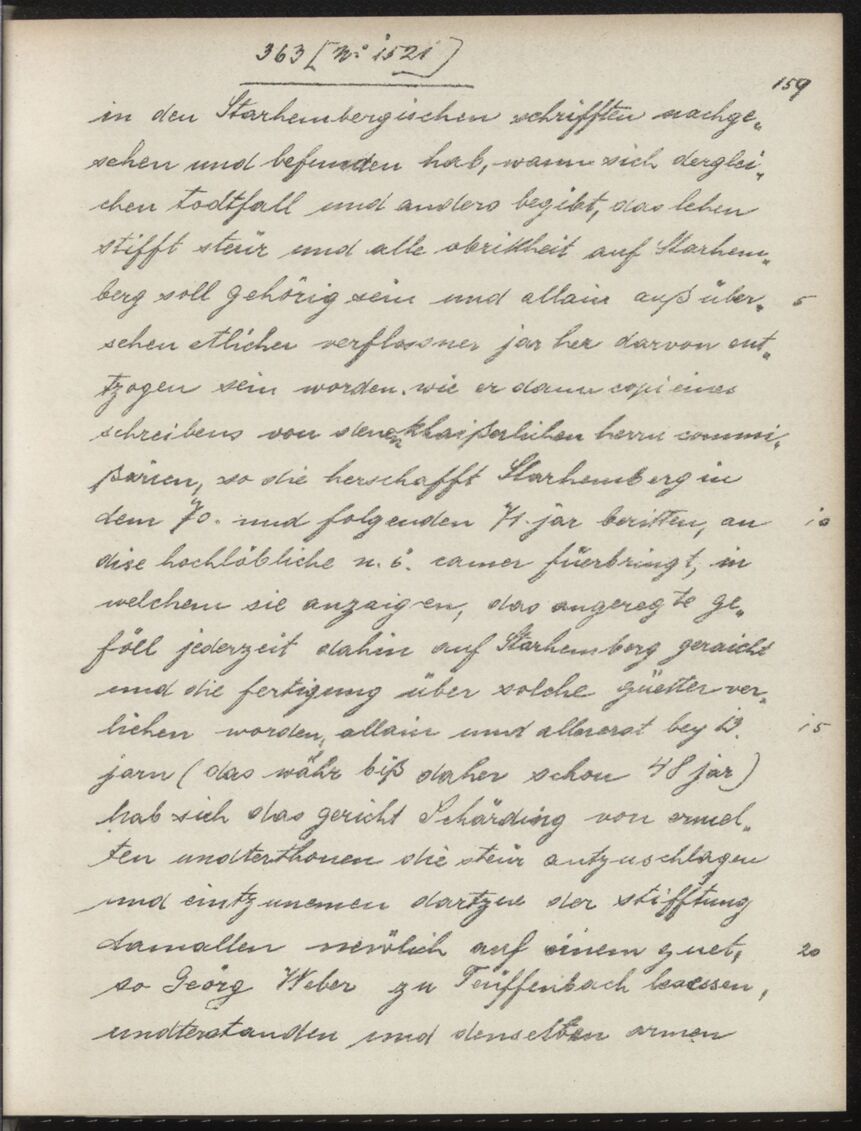 363 [Nº 1521]
159
in den Starhembergischen schrifften nachge„
sehen und befunden hab, wann sich derglei„
chen todtfall und anders begibt, das lehen
stifft steür und alle obrikheit auf Starhem„
berg soll gehörig sein und allain auß über„ 5
sehen etlicher verflossner jar her darvon ent„
tzogen sein worden. wie er dann copi eines
schreibens von denen khaißerlichen herrn commi„
ßarien, so die herschafft Starhemberg in
dem 70. und folgenden 71. jar beritten, an 10
dise hochlöbliche n. ö. camer füerbringt, in
welchem sie anzaigen, das angeregte ge„
föll jederzeit dahin auf Starhemberg geraicht
und die fertigung über solche güetter ver„
lichen worden, allain und allererst bey 12. 15
jarn (das währ biß daher schon 48 jar)
hab sich das gericht Schärding von ermel„
ten undterthonen die steür antzuschlagen
und eintzunemen dartzue der stifftung
damallen nemblich auf einem guet, 20
so Geörg Weber zu Teüffenbach besessen,
undterstanden und denselben armen